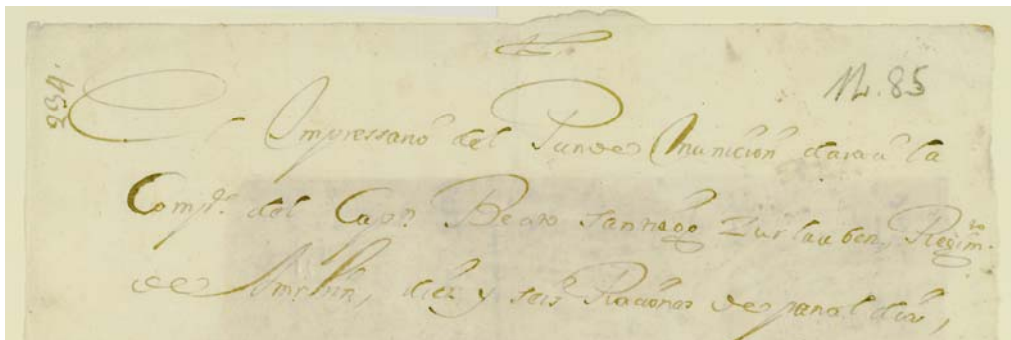 234.
N. 85
El Impressario del Pan de Munición dara a la
Comp.ª del Cap.n Beato Santiago Zurlauben, Regim.to
de diez y seis Raciones de pan al dia,